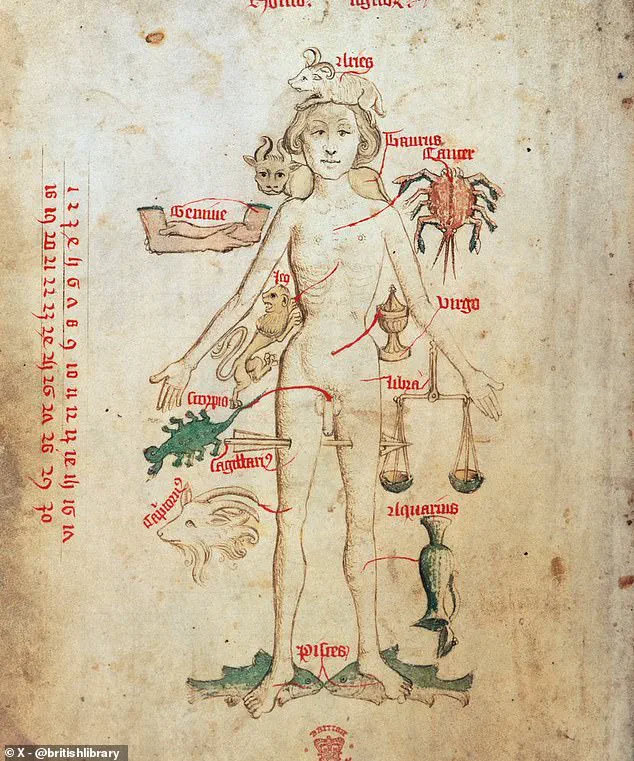 Aries
Taurus
Cancer
leo
virgo
libra
Scorpio
Sagittariꝰ
Capricornꝰ
Aquarius
Pisces
1 2 3 4 5 6 7 8 9 10 11 12 13 14 15 16 17
18 19 20 21 22 23 24 25 26 27 28 29 30
© X - @britishlibrary